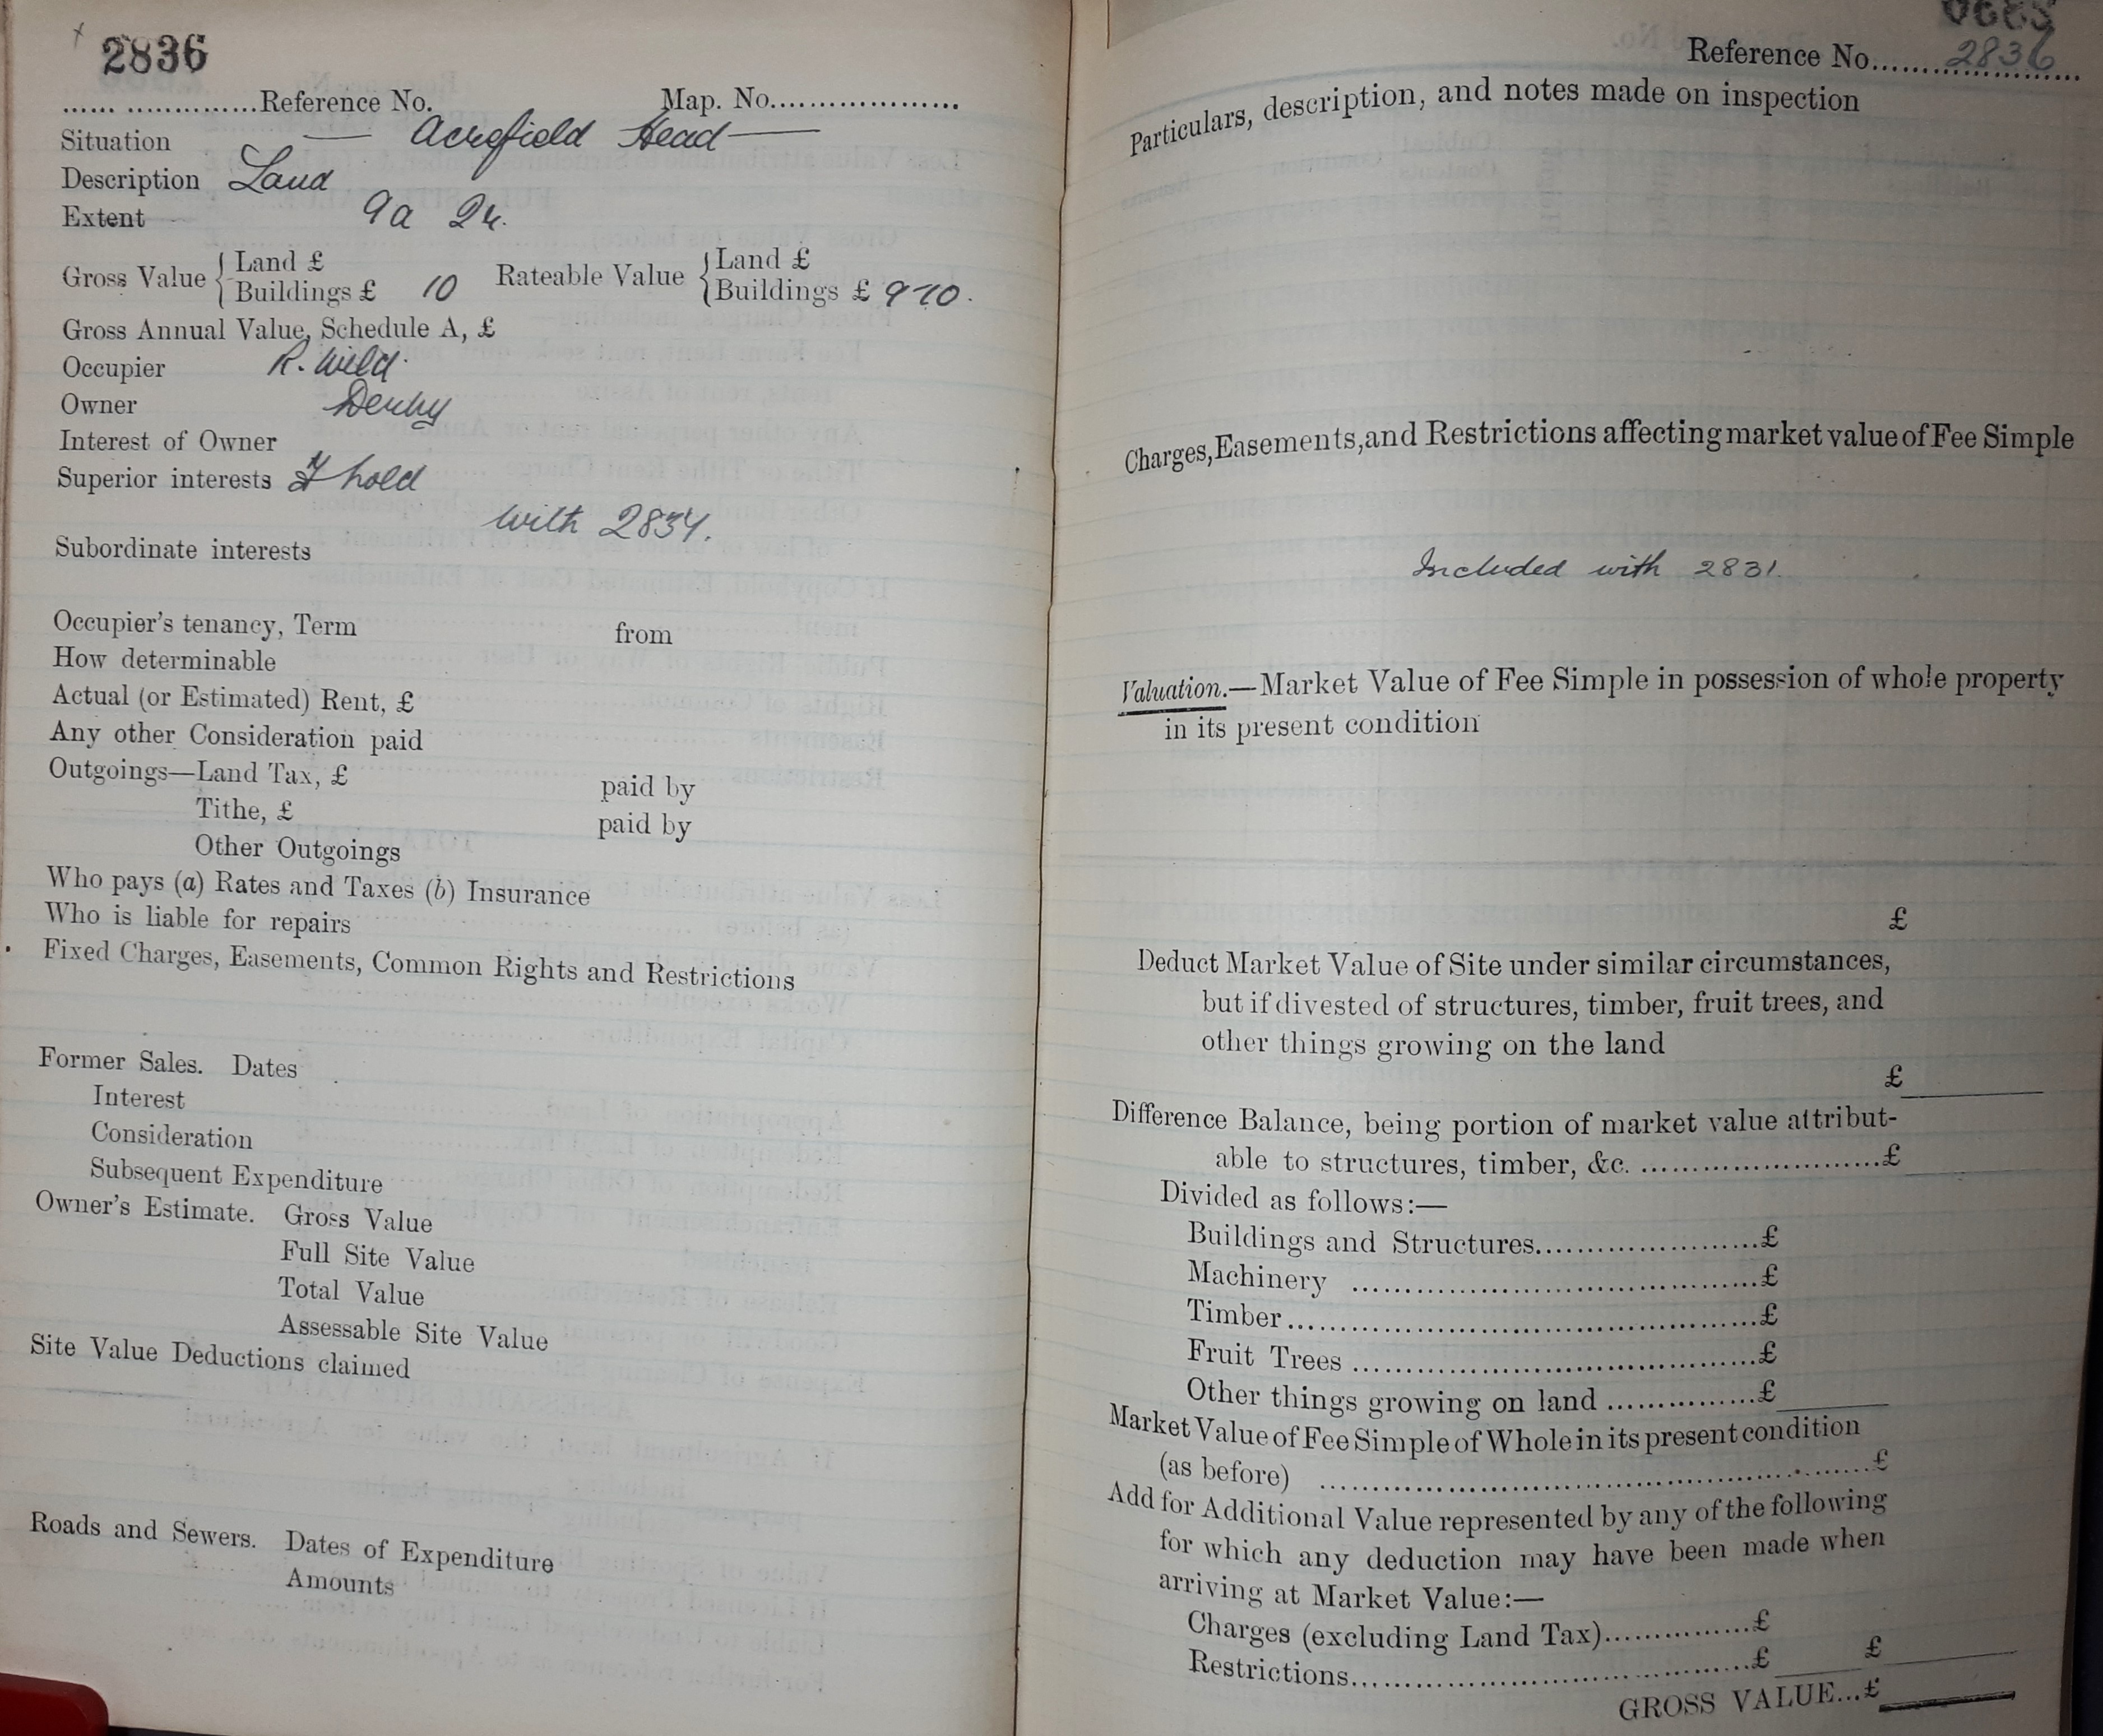 2836
Reference No. Map. No.
Situation — Acrefield Head —
Description Land
Extent 9a 2r.
Gross Value { Land £ Rateable Value { Land £
Buildings £ 10 Buildings £ 9 10.
Gross Annual Value, Schedule A, £
Occupier R. Wild
Owner Derby
Interest of Owner
Superior interests F hold
with 2834.
Subordinate interests
Occupier's tenancy, Term from
How determinable
Actual (or Estimated) Rent, £
Any other Consideration paid
Outgoings—Land Tax, £ paid by
Tithe, £ paid by
Other Outgoings
Who pays (a) Rates and Taxes (b) Insurance
Who is liable for repairs
Fixed Charges, Easements, Common Rights and Restrictions
Former Sales. Dates
Interest
Consideration
Subsequent Expenditure
Owner's Estimate. Gross Value
Full Site Value
Total Value
Assessable Site Value
Site Value Deductions claimed
Roads and Sewers. Dates of Expenditure
Amounts
Reference No. 2836
Particulars, description, and notes made on inspection
Charges, Easements, and Restrictions affecting market value of Fee Simple
Included with 2831.
Valuation.—Market Value of Fee Simple in possession of whole property
in its present condition
£
Deduct Market Value of Site under similar circumstances,
but if divested of structures, timber, fruit trees, and
other things growing on the land
£
Difference Balance, being portion of market value attribut-
able to structures, timber, &c. £
Divided as follows:—
Buildings and Structures £
Machinery £
Timber £
Fruit Trees £
Other things growing on land £
Market Value of Fee Simple of Whole in its present condition
(as before) £
Add for Additional Value represented by any of the following
for which any deduction may have been made when
arriving at Market Value:—
Charges (excluding Land Tax) £
Restrictions £ £
GROSS VALUE...£